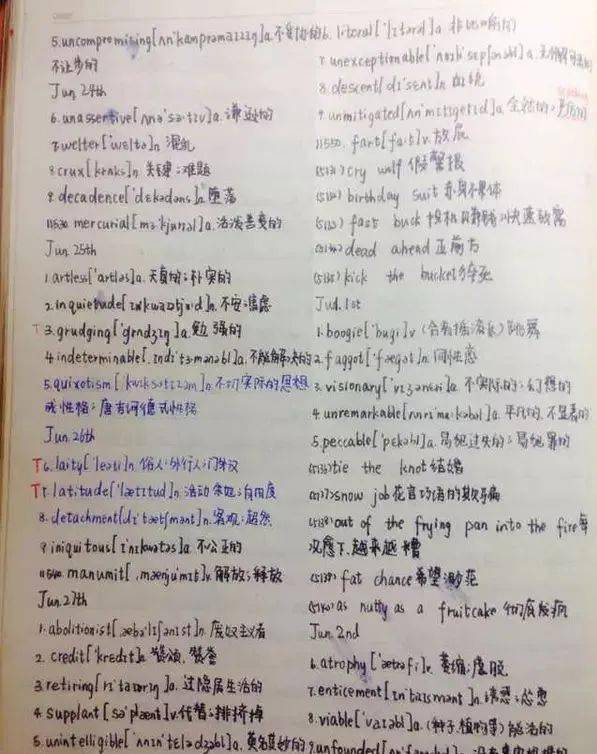 5.uncompromising[ʌn'kɑmprəmaɪzɪŋ]a.不妥协的
不让步的
Jun 24th
6.unassertive[ʌnə'sə·tɪv]a.谦逊的
7.welter['weltə]n.混乱
8.crux[krʌks]n.关键;难题
9.decadence['dɛkədəns]n.堕落
mercurial[mə·'kjʊrɪəl]a.活泼善变的
Jun 25th
1.artless['ɑrtləs]a.天真的;朴实的
2.inquietude[ɪn'kwaɪətjud]n.不安;焦虑
T 3.grudging['grʌdʒɪŋ]a.勉强的
4.indeterminable[,ɪndɪ'tɜ·mənəbl]a.不能解决的
5.quixotism['kwɪksətɪzəm]n.不切实际的思想
或性格;唐吉诃德式性格
Jun 26th
T 6.laity['leətɪ]n.俗人;外行人;门外汉
T 7.latitude['lætɪtud]n.活动余地;自由度
8.detachment[dɪ'tætʃmənt]n.客观;超然
9.iniquitous[ɪ'nɪkwətəs]a.不公正的
11540.manumit[,mænju'mɪt]v.解放;释放
Jun 27th
1.abolitionist[æbə'lɪʃənɪst]n.废奴主义者
2.credit['kredɪt]n.赞颂,赞誉
3.retiring[rɪ'taɪərɪŋ]a.过隐居生活的
4.supplant[sə'plænt]v.代替;排挤掉
5.unintelligible[ʌnɪn'tɛlədʒəbl]a.莫名其妙的
6.literal['lɪtərəl]a.
7.unexceptionable[ʌnɪk'sepʃənəbl]a.
8.descent[dɪ'sɛnt]n.血统
9.unmitigated[ʌn'mɪtɪgetɪd]a.全然的;
11550.fart[fɑ·t]v.放屁
(5131)cry wolf 假警报
(5132)birthday suit 赤身裸体
(5133)fast buck 投机取巧
(5134)dead ahead 正前方
(5135)kick the bucket
Jul.1st
1.boogie['bugɪ]v.(合着摇滚乐)跳舞
2.faggot['fægət]n.同性恋
3.visionary['vɪʒənɛrɪ]a.不实际的;幻想的
4.unremarkable[ʌnrɪ'mɑ·kəbəl]a.平凡的,不显著的
5.peccable['pɛkəbl]a.易犯过失的;易犯罪的
(5136)tie the knot 结婚
(5137)snow job 花言巧语的欺骗
(5138)out of the frying pan into the fire 每
况愈下,越来越糟
(5139)fat chance 希望渺茫
(5140)as nutty as a fruitcake 彻底发疯
Jun 2nd
6.atrophy['ætrəfi]n.萎缩;虚脱
7.enticement[ɪn'taɪsmənt]n.诱惑;怂恿
8.viable['vaɪəbl]a.(种子,植物等)能活的
9.unfounded